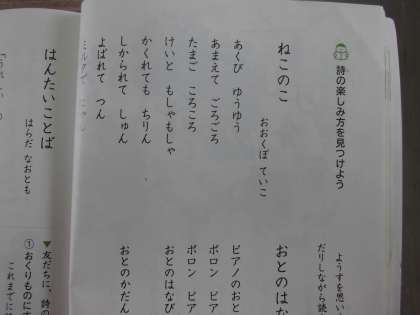 詩の楽しみ方を見つけよう
ねこのこ
おおくぼ ていこ
あくび ゆうゆう
あまえて ごろごろ
たまご ころころ
けいと もしゃもしゃ
かくれても ちりん
しかられて しゅん
よばれて つん
ようすを思い
だりしながら読
おとのはな
ピアノのおと
ポロン ピア
ポロン ピア
おとのはなび
おとのかだん
はんたいことば
はらだ なおとも
▼友だちに、詩の
①おくりものにす
これまでに